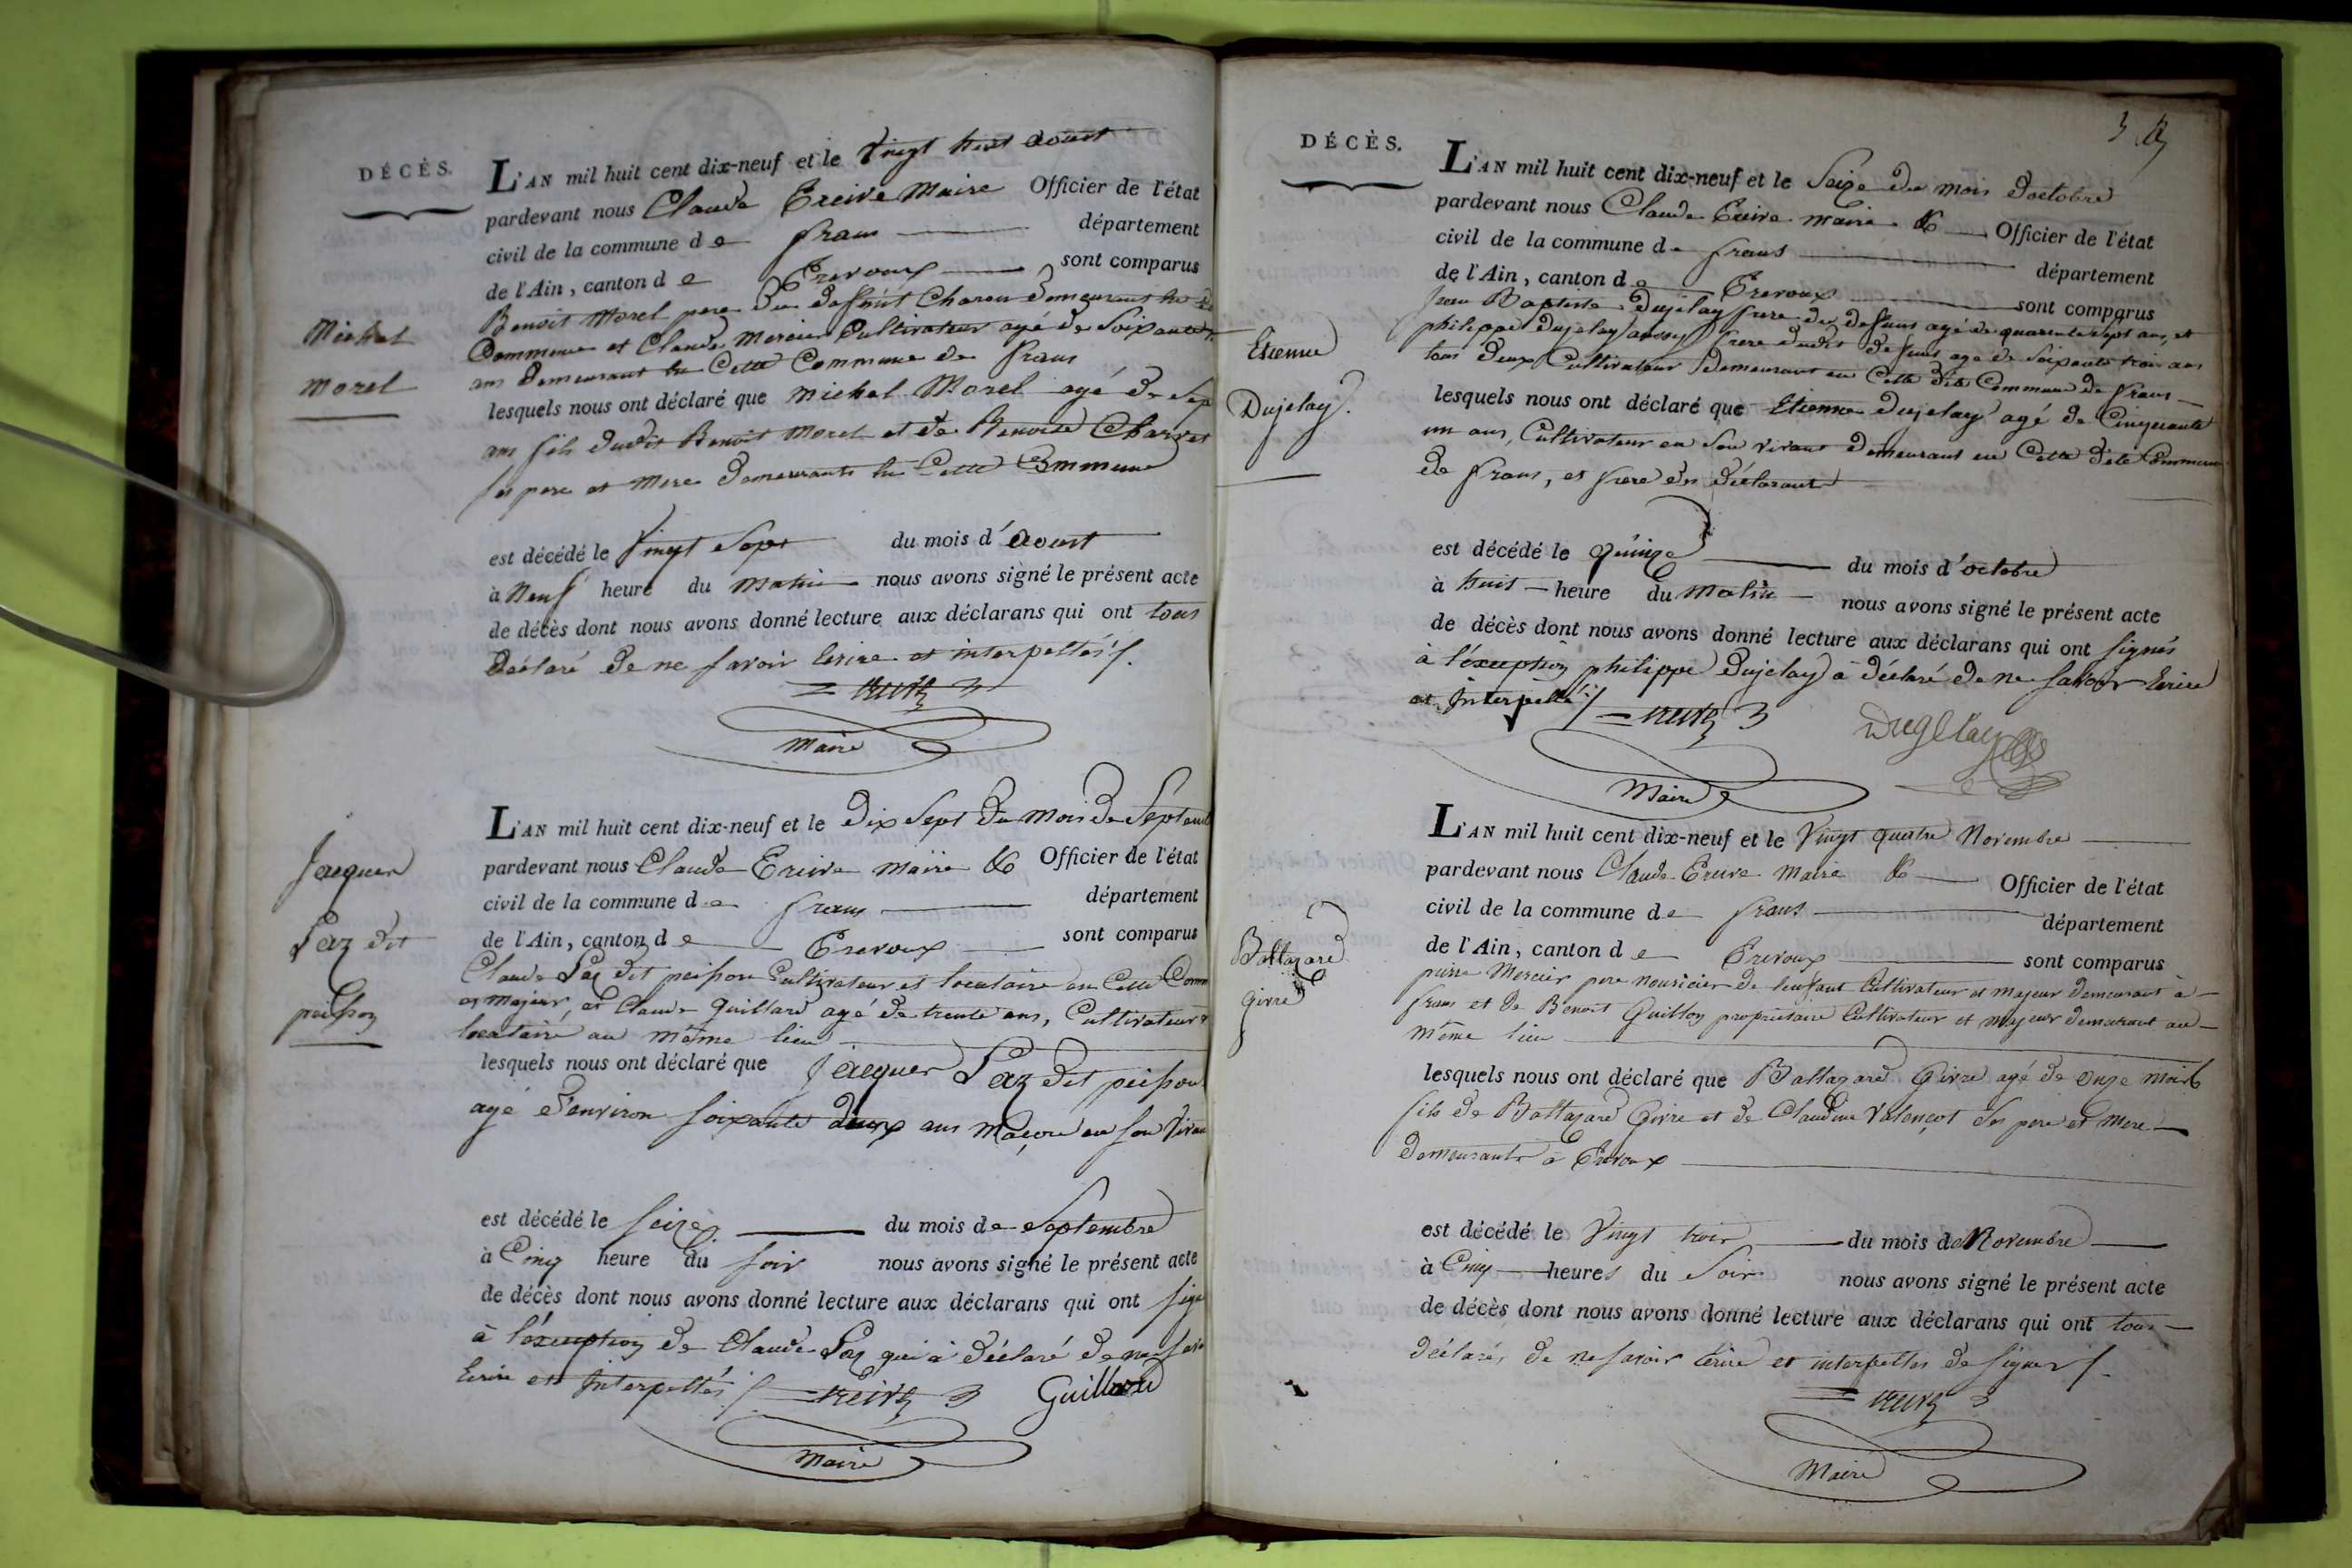 DÉCÈS.
L'AN mil huit cent dix-neuf et le vingt huit aoust
pardevant nous Claude Treive Maire Officier de l'état
civil de la commune de frans département
de l'Ain, canton de Trevoux sont comparus
Benoit Morel pere du deffunt demeurant
Commune et Claude Mercier Cultivateur agé de Soixante
ans demeurant en Cette Commune de frans
Michel
Morel
lesquels nous ont déclaré que Michel Morel agé de Sep
ans fils dudit Benoit Morel et de Benoite
ses pere et Mere demeurants en Cette Commune
est décédé le Vingt Sept du mois d'aoust
à Neuf heure du Matin nous avons signé le présent acte
de décès dont nous avons donné lecture aux déclarans qui ont tous
déclaré de ne savoir Ecrire et interpellés ./.
Treive
Maire
Jacques
Paz dit
peisson
L'AN mil huit cent dix-neuf et le dix Sept du mois de Septem
pardevant nous Claude Treive Maire &c Officier de l'état
civil de la commune de frans département
de l'Ain, canton de Trevoux sont comparus
Claude Paz dit peisson Cultivateur et locataire en Cette Comm
et Majeur, et Claude Guillard agé de trente ans, Cultivateur &
locataire au même lieu
lesquels nous ont déclaré que Jacques Paz dit peisson
agé d'environ soixante deux ans Maçon en son Vivan
est décédé le seize du mois de Septembre
à Cinq heure du soir nous avons signé le présent acte
de décès dont nous avons donné lecture aux déclarans qui ont sign
à l'exception de Claude Paz qui à déclaré de ne sav
Ecrire et Interpellés ./. Treive Guillard
Maire
DÉCÈS.
L'AN mil huit cent dix-neuf et le Seize du mois d'octobre
pardevant nous Claude Treive maire &c Officier de l'état
civil de la commune de frans département
de l'Ain, canton de Trevoux sont comparus
Jean Baptiste Dujelay frere du defunt agé de quarante sept ans, et
philippe Dujelay aussy frere dudit defunt agé de Soixante trois ans
tous deux Cultivateur demeurant en Cette dite Commune de frans
Etienne
Dujelay.
lesquels nous ont déclaré que Etienne Dujelay agé de Cinquante
un ans, Cultivateur en Son vivant demeurant en Cette dite Commune
de frans, et frere des déclarants
est décédé le Quinze du mois d'octobre
à huit heure du Matin nous avons signé le présent acte
de décès dont nous avons donné lecture aux déclarans qui ont signés
à l'exception philippe Dujelay à déclaré de ne savoir Ecrire
et Interpellé ./. Treive
Duglay
Maire
L'AN mil huit cent dix-neuf et le Vingt quatre Novembre
pardevant nous Claude Treive Maire &c Officier de l'état
civil de la commune de frans département
de l'Ain, canton de Trevoux sont comparus
pierre Mercier pere nouricier de l'enfant Cultivateur et majeur demeurant à
frans et de Benoit Guillon propriétaire Cultivateur et majeur demeurant au
même lieu
Baltazard
Givre
lesquels nous ont déclaré que Baltazard Givre agé de onze Mois
fils de Baltazard Givre et de Claudine Valençot Ses pere et Mere
demeurants à Trevoux
est décédé le Vingt trois du mois de Novembre
à Cinq heures du Soir nous avons signé le présent acte
de décès dont nous avons donné lecture aux déclarans qui ont tous
déclarés de ne savoir Ecrire et interpellés de signer ./.
Treive
Maire